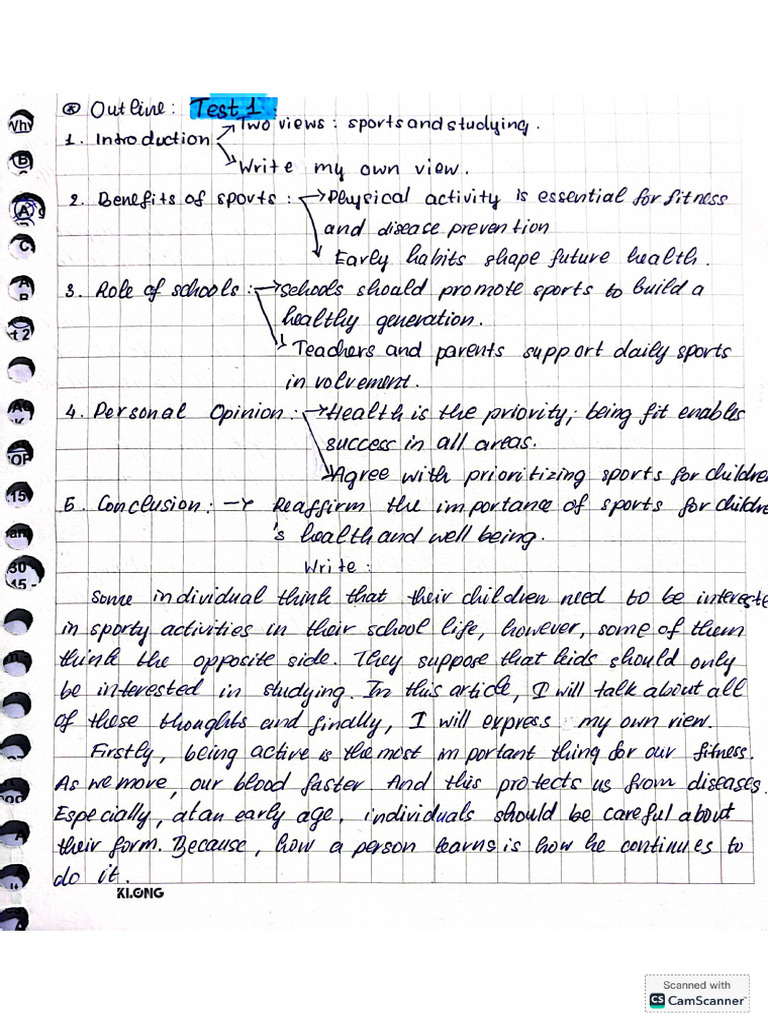 ⊛ Outline: Test 1.
1. Introduction → Two views: sports and studying.
→ Write my own view.
2. Benefits of sports: → Physical activity is essential for fitness
and disease prevention
→ Early habits shape future health.
3. Role of schools: → Schools should promote sports to build a
healthy generation.
→ Teachers and parents support daily sports
involvement.
4. Personal Opinion: → Health is the priority; being fit enables
success in all areas.
→ Agree with prioritizing sports for children
5. Conclusion: → Reaffirm the importance of sports for childre
's health and well being.
Write:
Some individual think that their children need to be intereste
in sporty activities in their school life, however, some of them
think the opposite side. They suppose that kids should only
be interested in studying. In this article, I will talk about all
of these thoughts and finally, I will express my own view.
Firstly, being active is the most important thing for our fitness.
As we move, our blood faster. And this protects us from diseases.
Especially, at an early age, individuals should be careful about
their form. Because, how a person learns is how he continues to
do it.
KLONG
Why
B
A
C
A
B
t 2
15
30
45 -
A
Scanned with
CS CamScanner